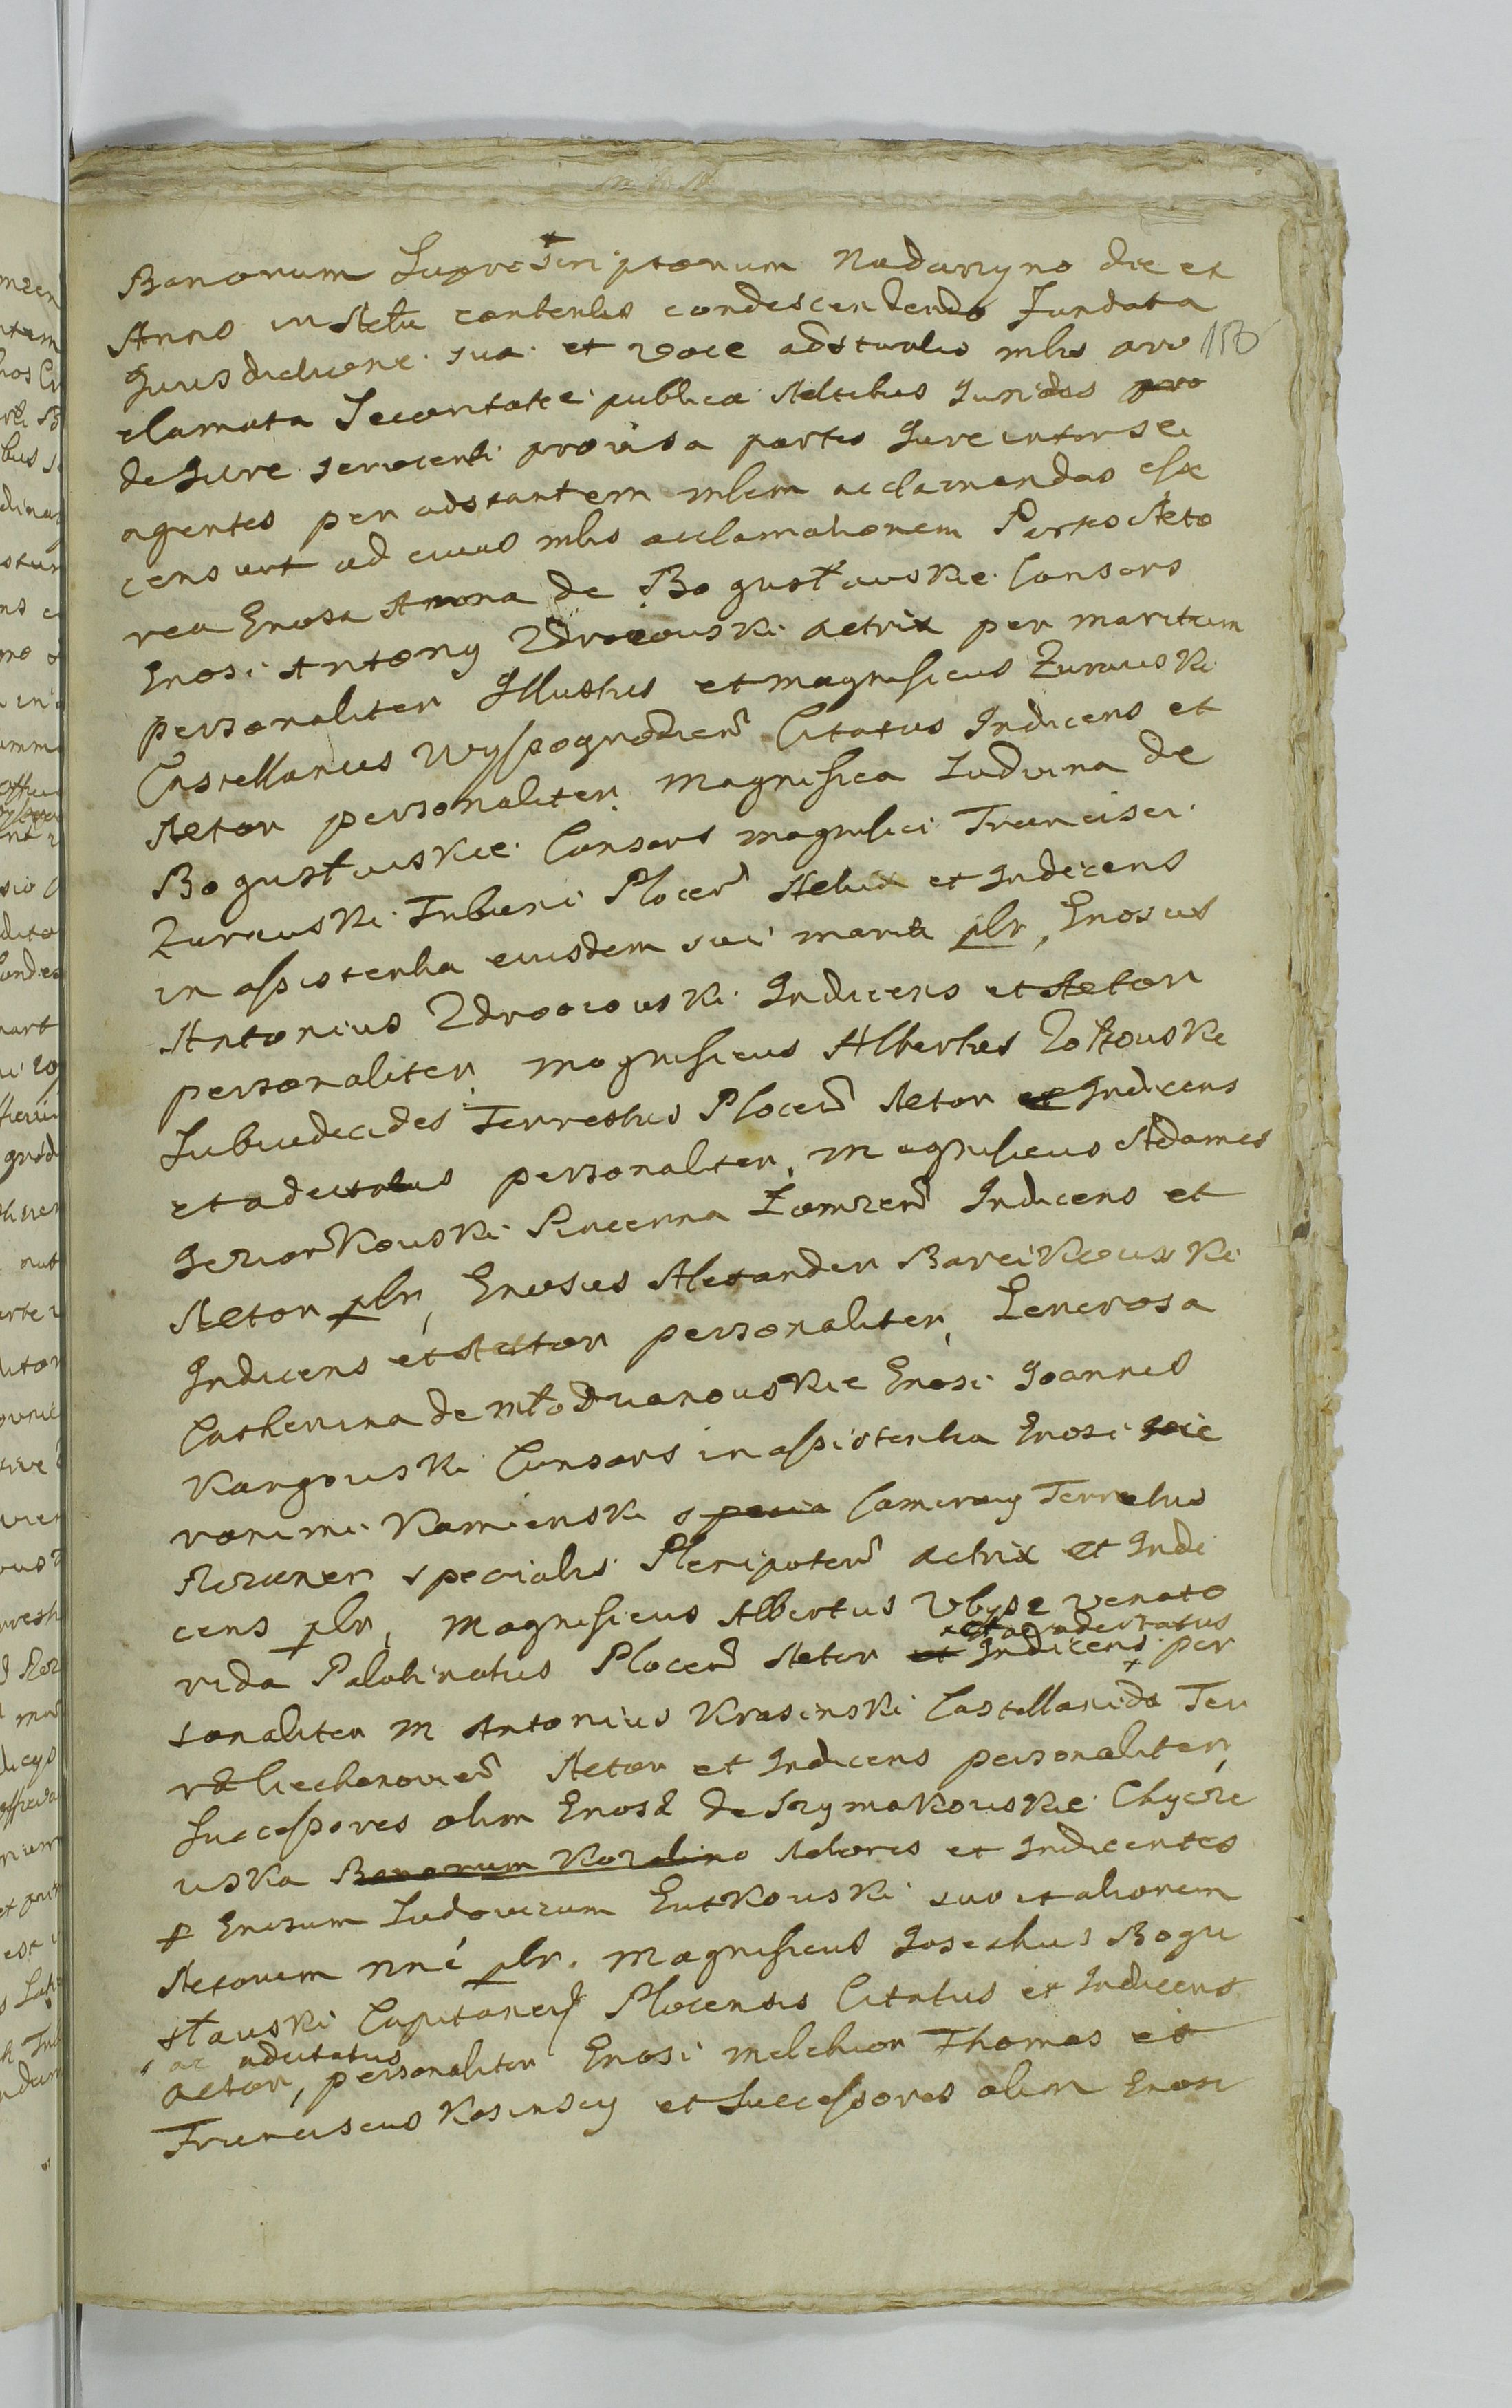 Bonorum Suprascriptorum Nadarzyno die et
Anno in Actu contentis condescendendo Fundata
Jurisdictione sua et voce adstantis mlis pro 150
clamata Securitate publica Actibus Juridicis
de Jure servienti provisa partes Jure inter se
agentes per adstantem mlem acclamandas esse
censuit ad cuius mlis acclamationem Partes Acto
rea Gnosa Anna de Bogusławskie Consors
Gnosi Antony Zdroiowski actrix per maritum
personaliter Illustris et magnificus Zurawski
Castellanus Wyszogrodien Citatus Indicens et
Actor personaliter, Magnifica Ludvina de
Bogusławskie Consors magnifici Francisci
Zurawski Tribuni Plocen Actrix et Indicens
in assistentia eiusdem sui mariti plr, Gnosus
Antonius Zdroiowski Indicens et Actor
personaliter, magnificus Albertus Zołtowski
Subiudecides Terrestris Plocen Actor et Indicens
et adcitatus personaliter, Magnificus Adames
Jeziorkowski Pincerna Łomzen Indicens et
Actor plr, Gnosus Alexander Barcikowski
Indicens et Actor personaliter, Generosa
Catherina de Młodzianowskie Gnosi Joannis
Kargowski Consors in assistentia Gnosi Hie
ronimi Kamienski Camerary Terrestris
Rozanen specialis Plenipoten actrix et Indi
cens plr, Magnificus Albertus Ubysz venato
rida Palatinatus Plocen Actor et Indicens per
et adcitatus
sonaliter M Antonius Krasinski Castellanida Ter
ræ Ciechanovien Actor et Indicens personaliter,
Successores olim Gnosæ de Szymakowskie Chycze
wska Bonorum Kozalino Actores et Indicentes
Gnosum Ludovicum Gutkowski
Actorem nné plr. Magnificus Josephus Bogu
sławski Capitaneus Plocensis Citatus et Indicens
ac adcitatus
actor, personaliter Gnosi Melchior Thomas et
Franciscus Kosinscy et Successores olim Gnosi